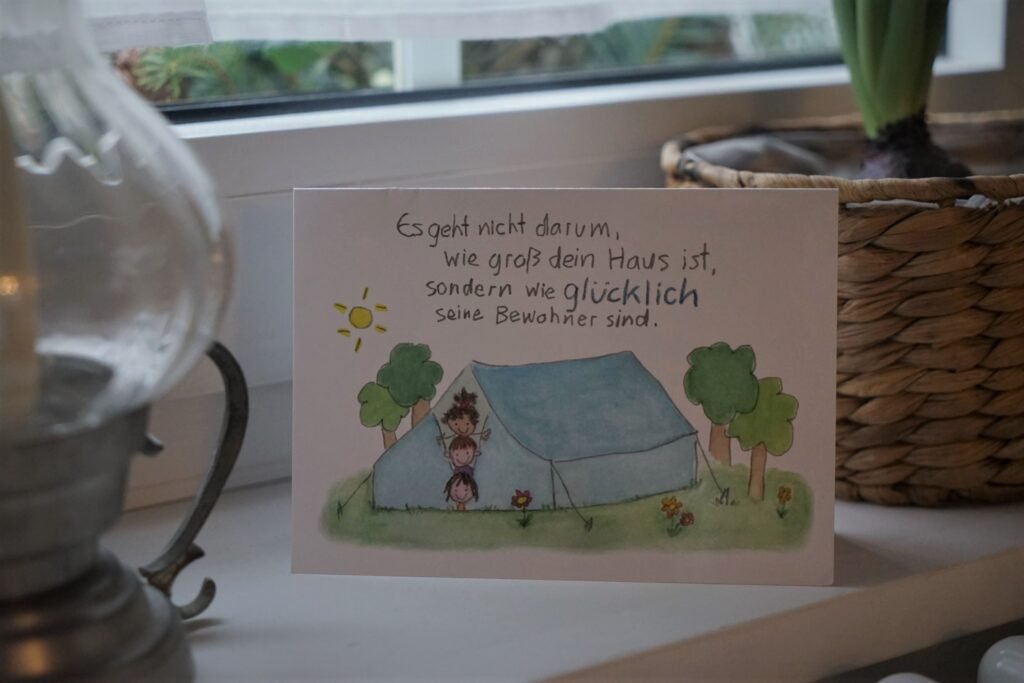 Es geht nicht darum,
wie groß dein Haus ist,
sondern wie glücklich
seine Bewohner sind.